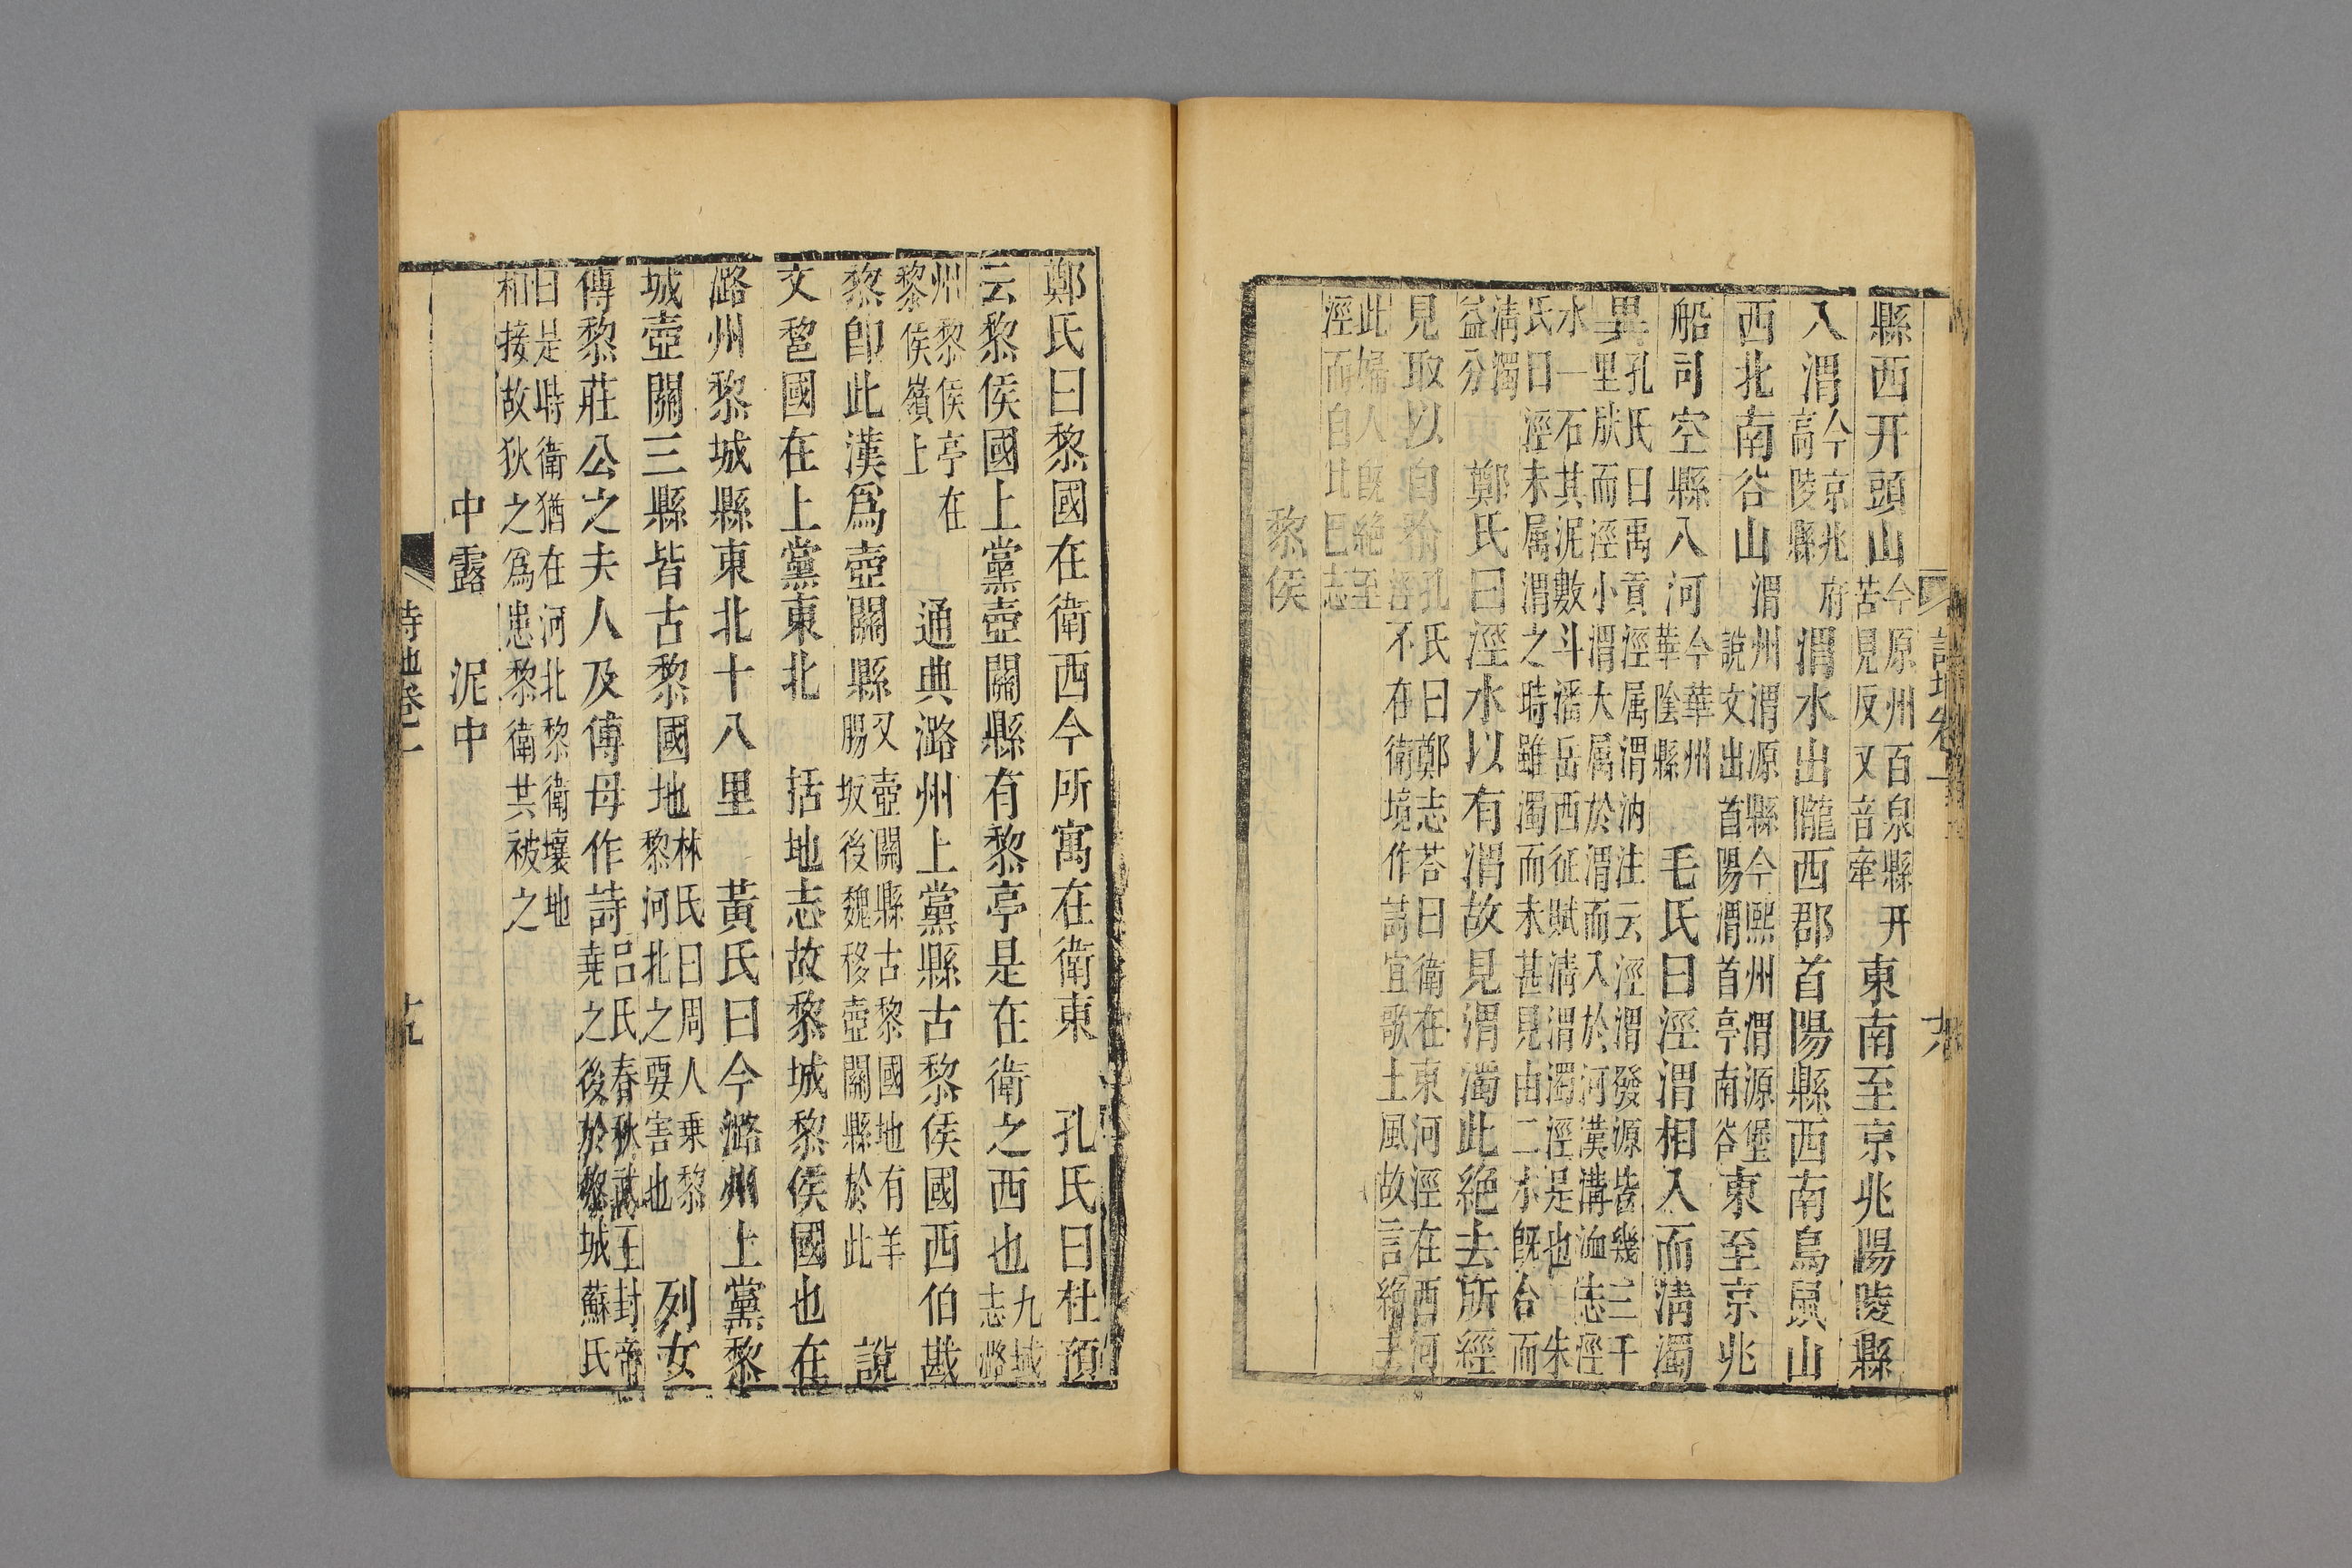 縣西幵頭山今原州百泉縣幵苦見反又音牽東南至京兆陽陵縣
入渭今京兆府高陵縣渭水出隴西郡首陽縣西南鳥䑕山
西北南谷山渭州渭源縣今熙州渭源堡說文出首陽渭首亭南谷東至京兆
船司空縣入河今華州華陰縣毛氏曰涇渭相入而淸濁
異孔氏曰禹貢涇属渭汭注云涇渭發源皆幾三千里肰而涇小渭大属於渭而入於河漢溝洫志涇
水一石其泥數斗潘岳西征賦淸渭濁涇是也朱氏曰涇未属渭之時雖濁而未甚見由二水既合而
淸濁益分鄭氏曰涇水以有渭故見渭濁此絶去所經
見取以自喻孔氏曰鄭志荅曰衛在東河涇在西河不在衛境作詩宜歌土風故言絶去
此婦人既絶至涇而自比巳志
黎侯
詩地卷一
鄭氏曰黎國在衛西今所寓在衛東孔氏曰杜預
云黎侯國上黨壺關縣有黎亭是在衛之西也九域志潞
州黎侯亭在黎侯嶺上通典潞州上黨縣古黎侯國西伯戡
黎卽此漢爲壺關縣又壺關縣古黎國地有羊腸坂後魏移壺關縣於此說
文𨛫國在上黨東北括地志故黎城黎侯國也在
潞州黎城縣東北十八里黃氏曰今潞州上黨黎
城壺關三縣皆古黎國地林氏曰周人乗黎黎河北之要害也列女
傳黎莊公之夫人及傅母作詩呂氏春秋武王封帝堯之後於黎城蘇氏
曰是時衛猶在河北黎衛壤地相接故狄之爲患黎衛共被之
中露　泥中
詩地卷一